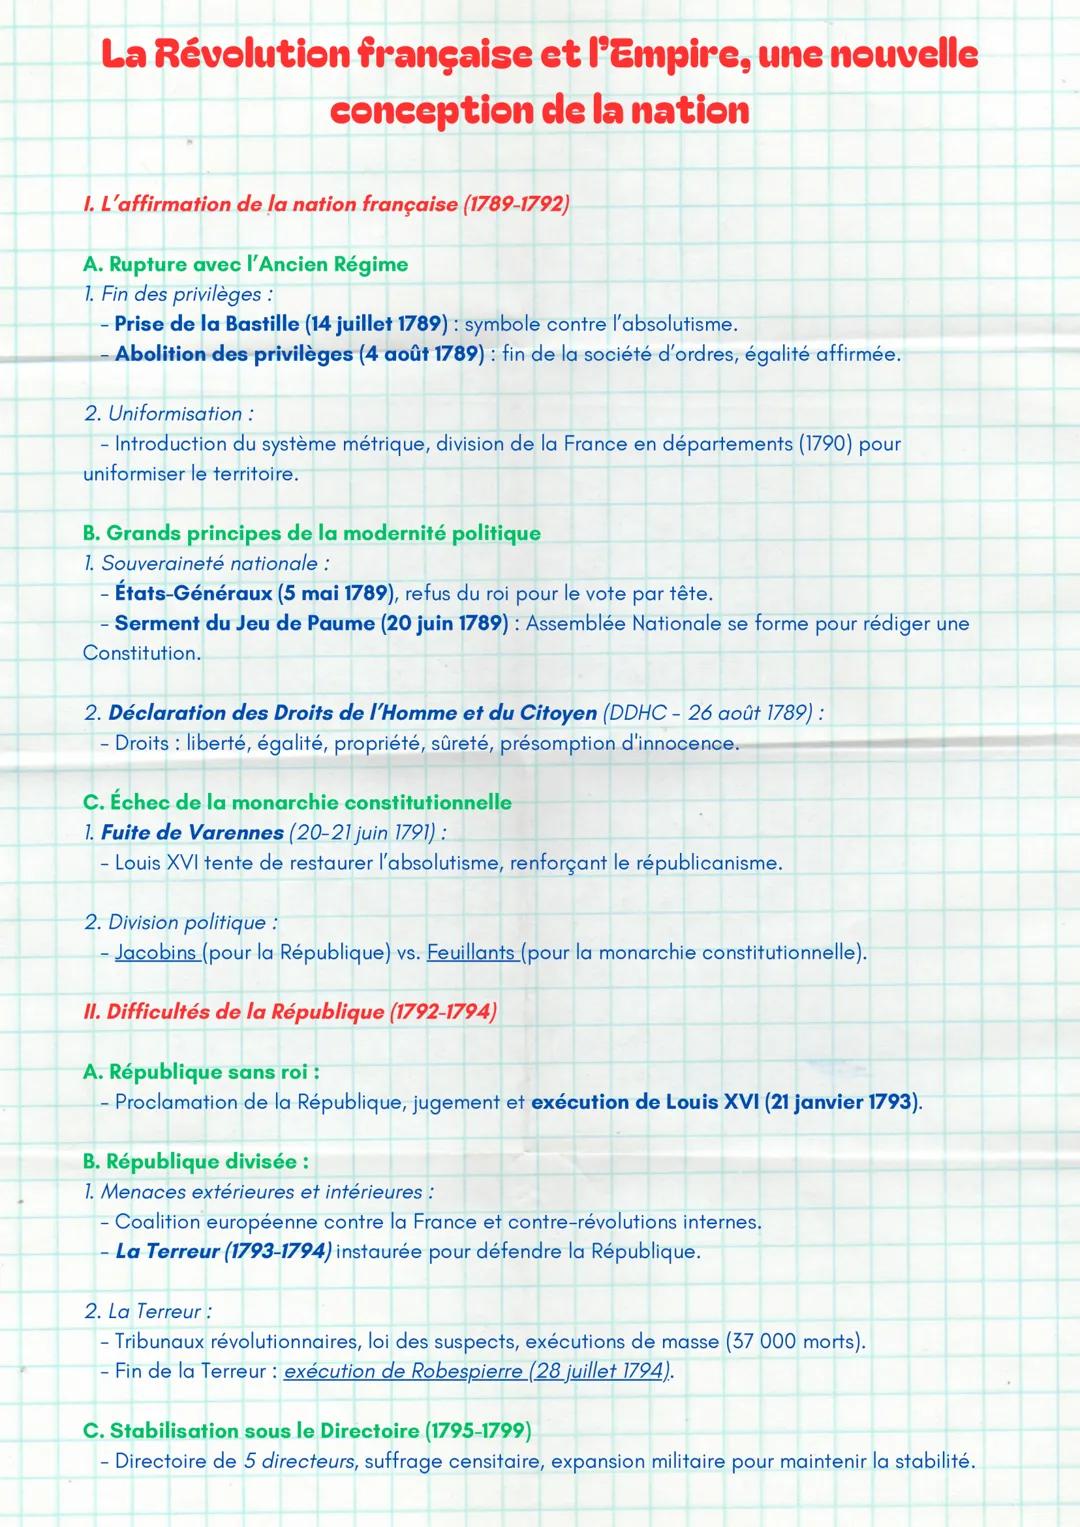 La Révolution française et l'Empire, une nouvelle
conception de la nation
I. L'affirmation de la nation française (1789-1792)
A. Rupture avec l'Ancien Régime
1. Fin des privilèges :
- Prise de la Bastille (14 juillet 1789) : symbole contre l'absolutisme.
- Abolition des privilèges (4 août 1789) : fin de la société d'ordres, égalité affirmée.
2. Uniformisation :
- Introduction du système métrique, division de la France en départements (1790) pour
uniformiser le territoire.
B. Grands principes de la modernité politique
1. Souveraineté nationale :
- États-Généraux (5 mai 1789), refus du roi pour le vote par tête.
- Serment du Jeu de Paume (20 juin 1789) : Assemblée Nationale se forme pour rédiger une
Constitution.
2. Déclaration des Droits de l'Homme et du Citoyen (DDHC - 26 août 1789) :
- Droits : liberté, égalité, propriété, sûreté, présomption d'innocence.
C. Échec de la monarchie constitutionnelle
1. Fuite de Varennes (20-21 juin 1791) :
- Louis XVI tente de restaurer l'absolutisme, renforçant le républicanisme.
2. Division politique :
- Jacobins (pour la République) vs. Feuillants (pour la monarchie constitutionnelle).
II. Difficultés de la République (1792-1794)
A. République sans roi :
- Proclamation de la République, jugement et exécution de Louis XVI (21 janvier 1793).
B. République divisée :
1. Menaces extérieures et intérieures :
- Coalition européenne contre la France et contre-révolutions internes.
- La Terreur (1793-1794) instaurée pour défendre la République.
2. La Terreur :
- Tribunaux révolutionnaires, loi des suspects, exécutions de masse (37 000 morts).
- Fin de la Terreur : exécution de Robespierre (28 juillet 1794).
C. Stabilisation sous le Directoire (1795-1799)
- Directoire de 5 directeurs, suffrage censitaire, expansion militaire pour maintenir la stabilité.